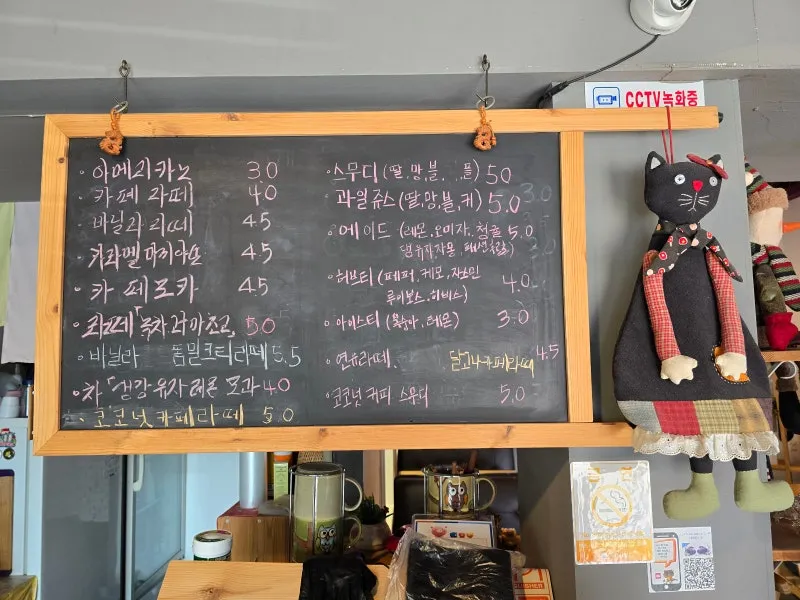 CCTV녹화중
· 아메리카노 3.0
· 카페 라떼 4.0
· 바닐라 라떼 4.5
· 카라멜마끼아또 4.5
· 카페모카 4.5
· 라떼「녹차고구마초코」 5.0
· 바닐라 밀크티라떼 5.5
· 차「생강 유자 레몬 모과 4.0
· 코코넛카페라떼 5.0
· 스무디 (딸,망,블, 플) 5.0
· 과일쥬스 (딸,망,블,키) 5.0
· 에이드 (레몬,오미자,청귤 5.0
· 허브티 (페퍼,캐모,자스민 4.0
루이보스,히비스)
· 아이스티 (복숭아,레몬) 3.0
· 연유라떼. 달고나카페라떼 4.5
· 코코넛 커피 스무디 5.0